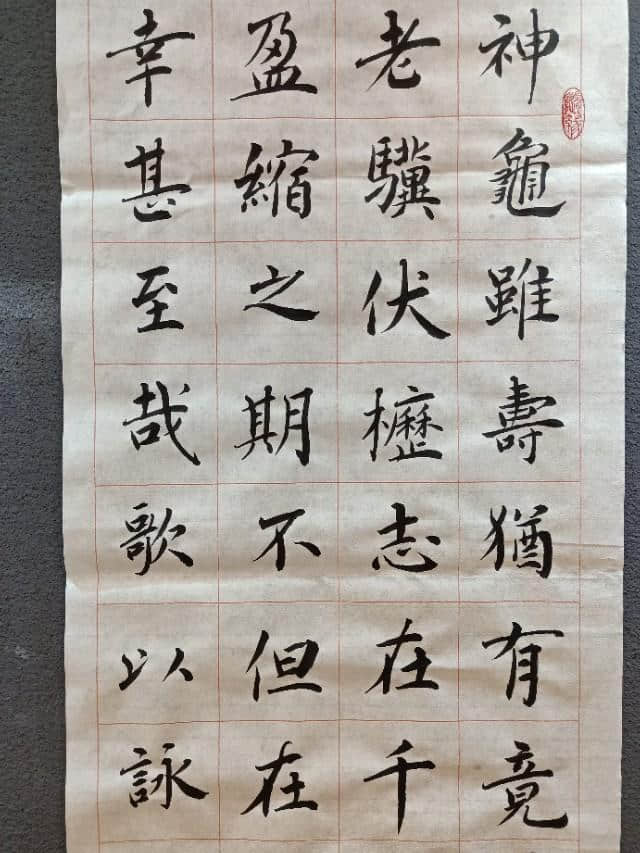 神龜雖壽猶有竟
老驥伏櫪志在千
盈縮之期不但在
幸甚至哉歌以詠